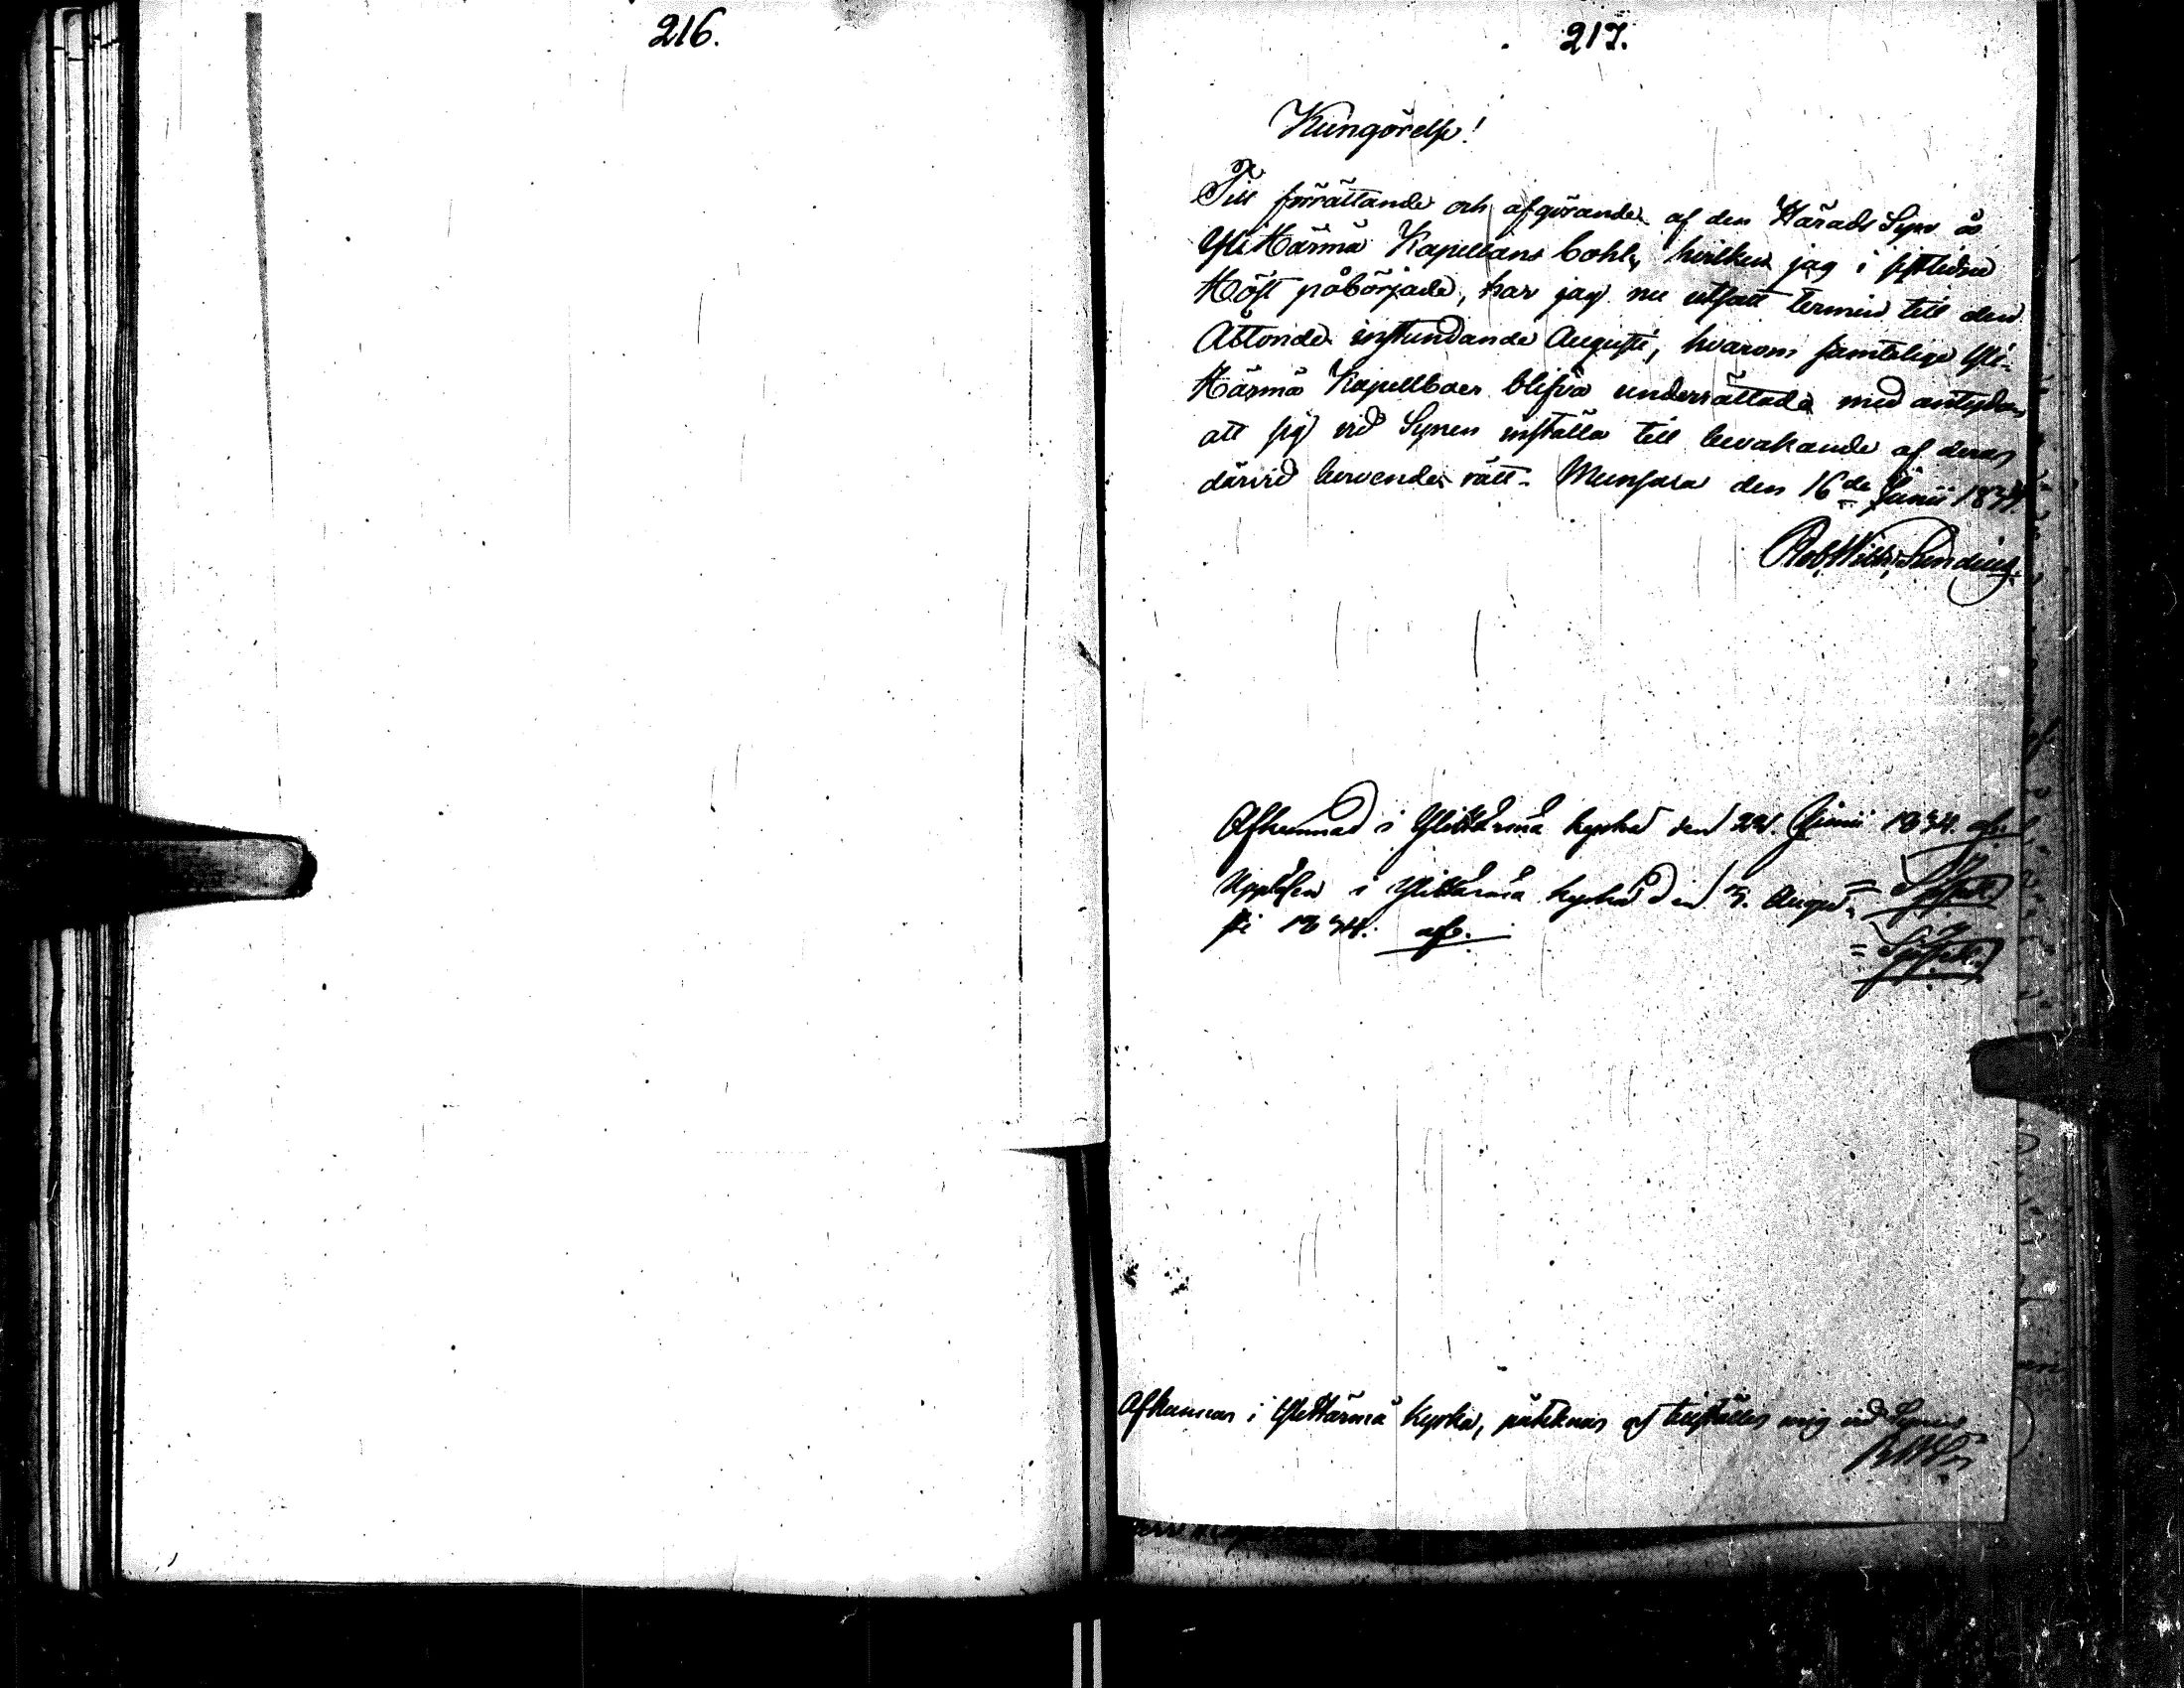 216.
217.
Kungörelse!
Till förrättande och afgörande af den Härads Syn å
Ylihärmä Kapellans bohl, hvilken jag i sistledne
Höst påbörjade, har jag nu utsatt termin till den
Åttonde instundande Augusti, hvarom samtelige Yli-
Härmä Kapellboer blifva underrättade med antydan
att sig vid Synen inställa till bevakande af deras
därvid beroende rätt. Munsala den 16de Junii 1834.
Rob. Wilh. Sundius.
Afkunnad i Ylihärmä kyrka den 22. Junii 1834. af.
Uppläsen i Ylihärmä kyrka den 3. Augu-
sti 1834. af.
Afkunnas i Ylihärmä Kyrka, påteknas och tillställes mig vid Synen